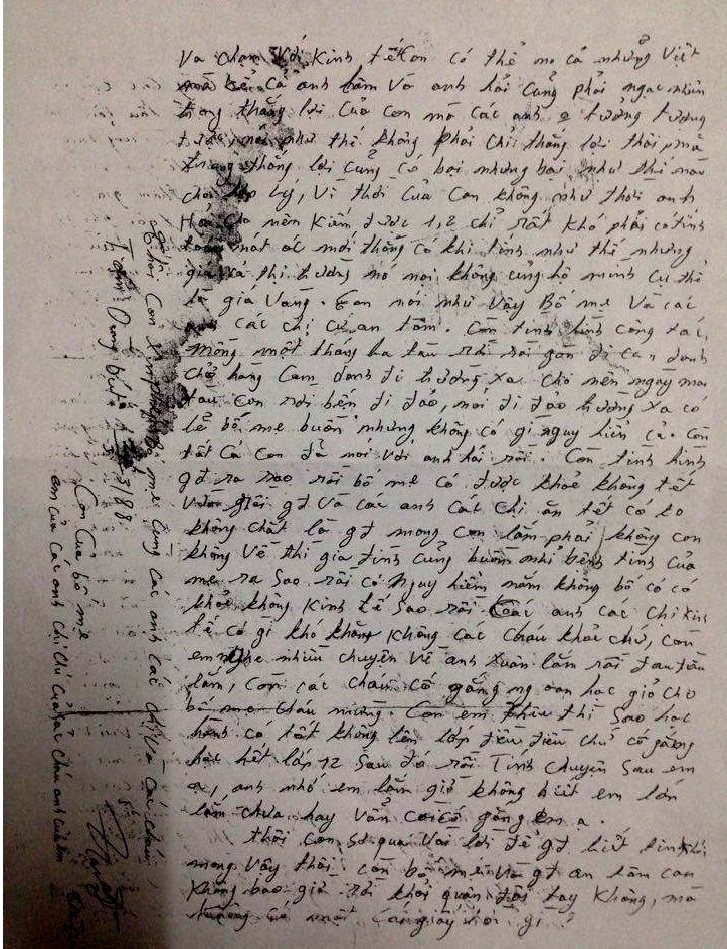 Va chạm với Kinh tế Con có thể mo cả những Việt
mà kể cả anh năm Và anh hải Cũng phải ngạc nhiên
trong thắng lợi của con mà các anh o tưởng tượng
được, nói như thế không phải Chỉ thắng lợi thôi, mà
trong thắng lợi cũng có bại nhưng bại như thế nào
cho hợp lý, Vì thời của Con không như thời anh
Hải Cho nên Kiếm được 1,2 chỉ rất khó phải có tính
toán nát óc mới thắng có khi tính như thế nhưng
giá cả thị trường nó nơi không ủng hộ mình Cụ thể
là giá Vàng. Con nói như Vậy Bố mẹ Và các
anh các chị cứ an tâm. Còn tình hình công tác,
mồng một tháng ba tàu rời sài gòn đi Cam danh
chở hàng Cam danh đi trường Xa Cho nên ngày mai
tàu Con rời bến đi đảo, nói đi đảo trường Xa có
lẽ bố mẹ buồn nhưng không có gì nguy hiểm cả. Còn
tất Cả Con đã nói với anh hải rồi. Còn tình hình
gđ ra sao rồi bố mẹ có được khoẻ không tết
vừa rồi gđ Và các anh các Chị ăn tết có to
không chắc là gđ mong Con lắm phải không con
không Về thì gia đình cũng buồn nhỉ bệnh tình của
mẹ ra Sao rồi có Nguy hiểm lắm không bố có có
khoẻ không Kinh tế Sao rồi Các anh các Chị Kinh
tế có gì khó khăn Không các Cháu khoẻ chứ, còn
em nghe nhiều chuyện Về anh Xuân lắm rồi đau đầu
lắm, Còn các cháu Cố gắng ngoan học giỏi Cho
bố mẹ cháu mừng. Còn em thì Sao học
hành có tốt không lên lớp đều đều chứ cố gắng
học hết lớp 12 Sau đó rồi Tính chuyện Sau em
ạ, anh nhớ em lắm giờ không biết em lớn
lắm chưa hay Vẫn còi cố gắng em ạ.
Thôi Con sơ qua Vài lời để gđ biết tình hình
mong Vậy thôi. Còn bố mẹ Và gđ an tâm con
Không bao giờ rời khỏi quân đội tay Không, mà
Thôi Con bố mẹ cùng các anh các chị Và các cháu
3/88
Con Của bố mẹ
em của các anh chị chú của các cháu